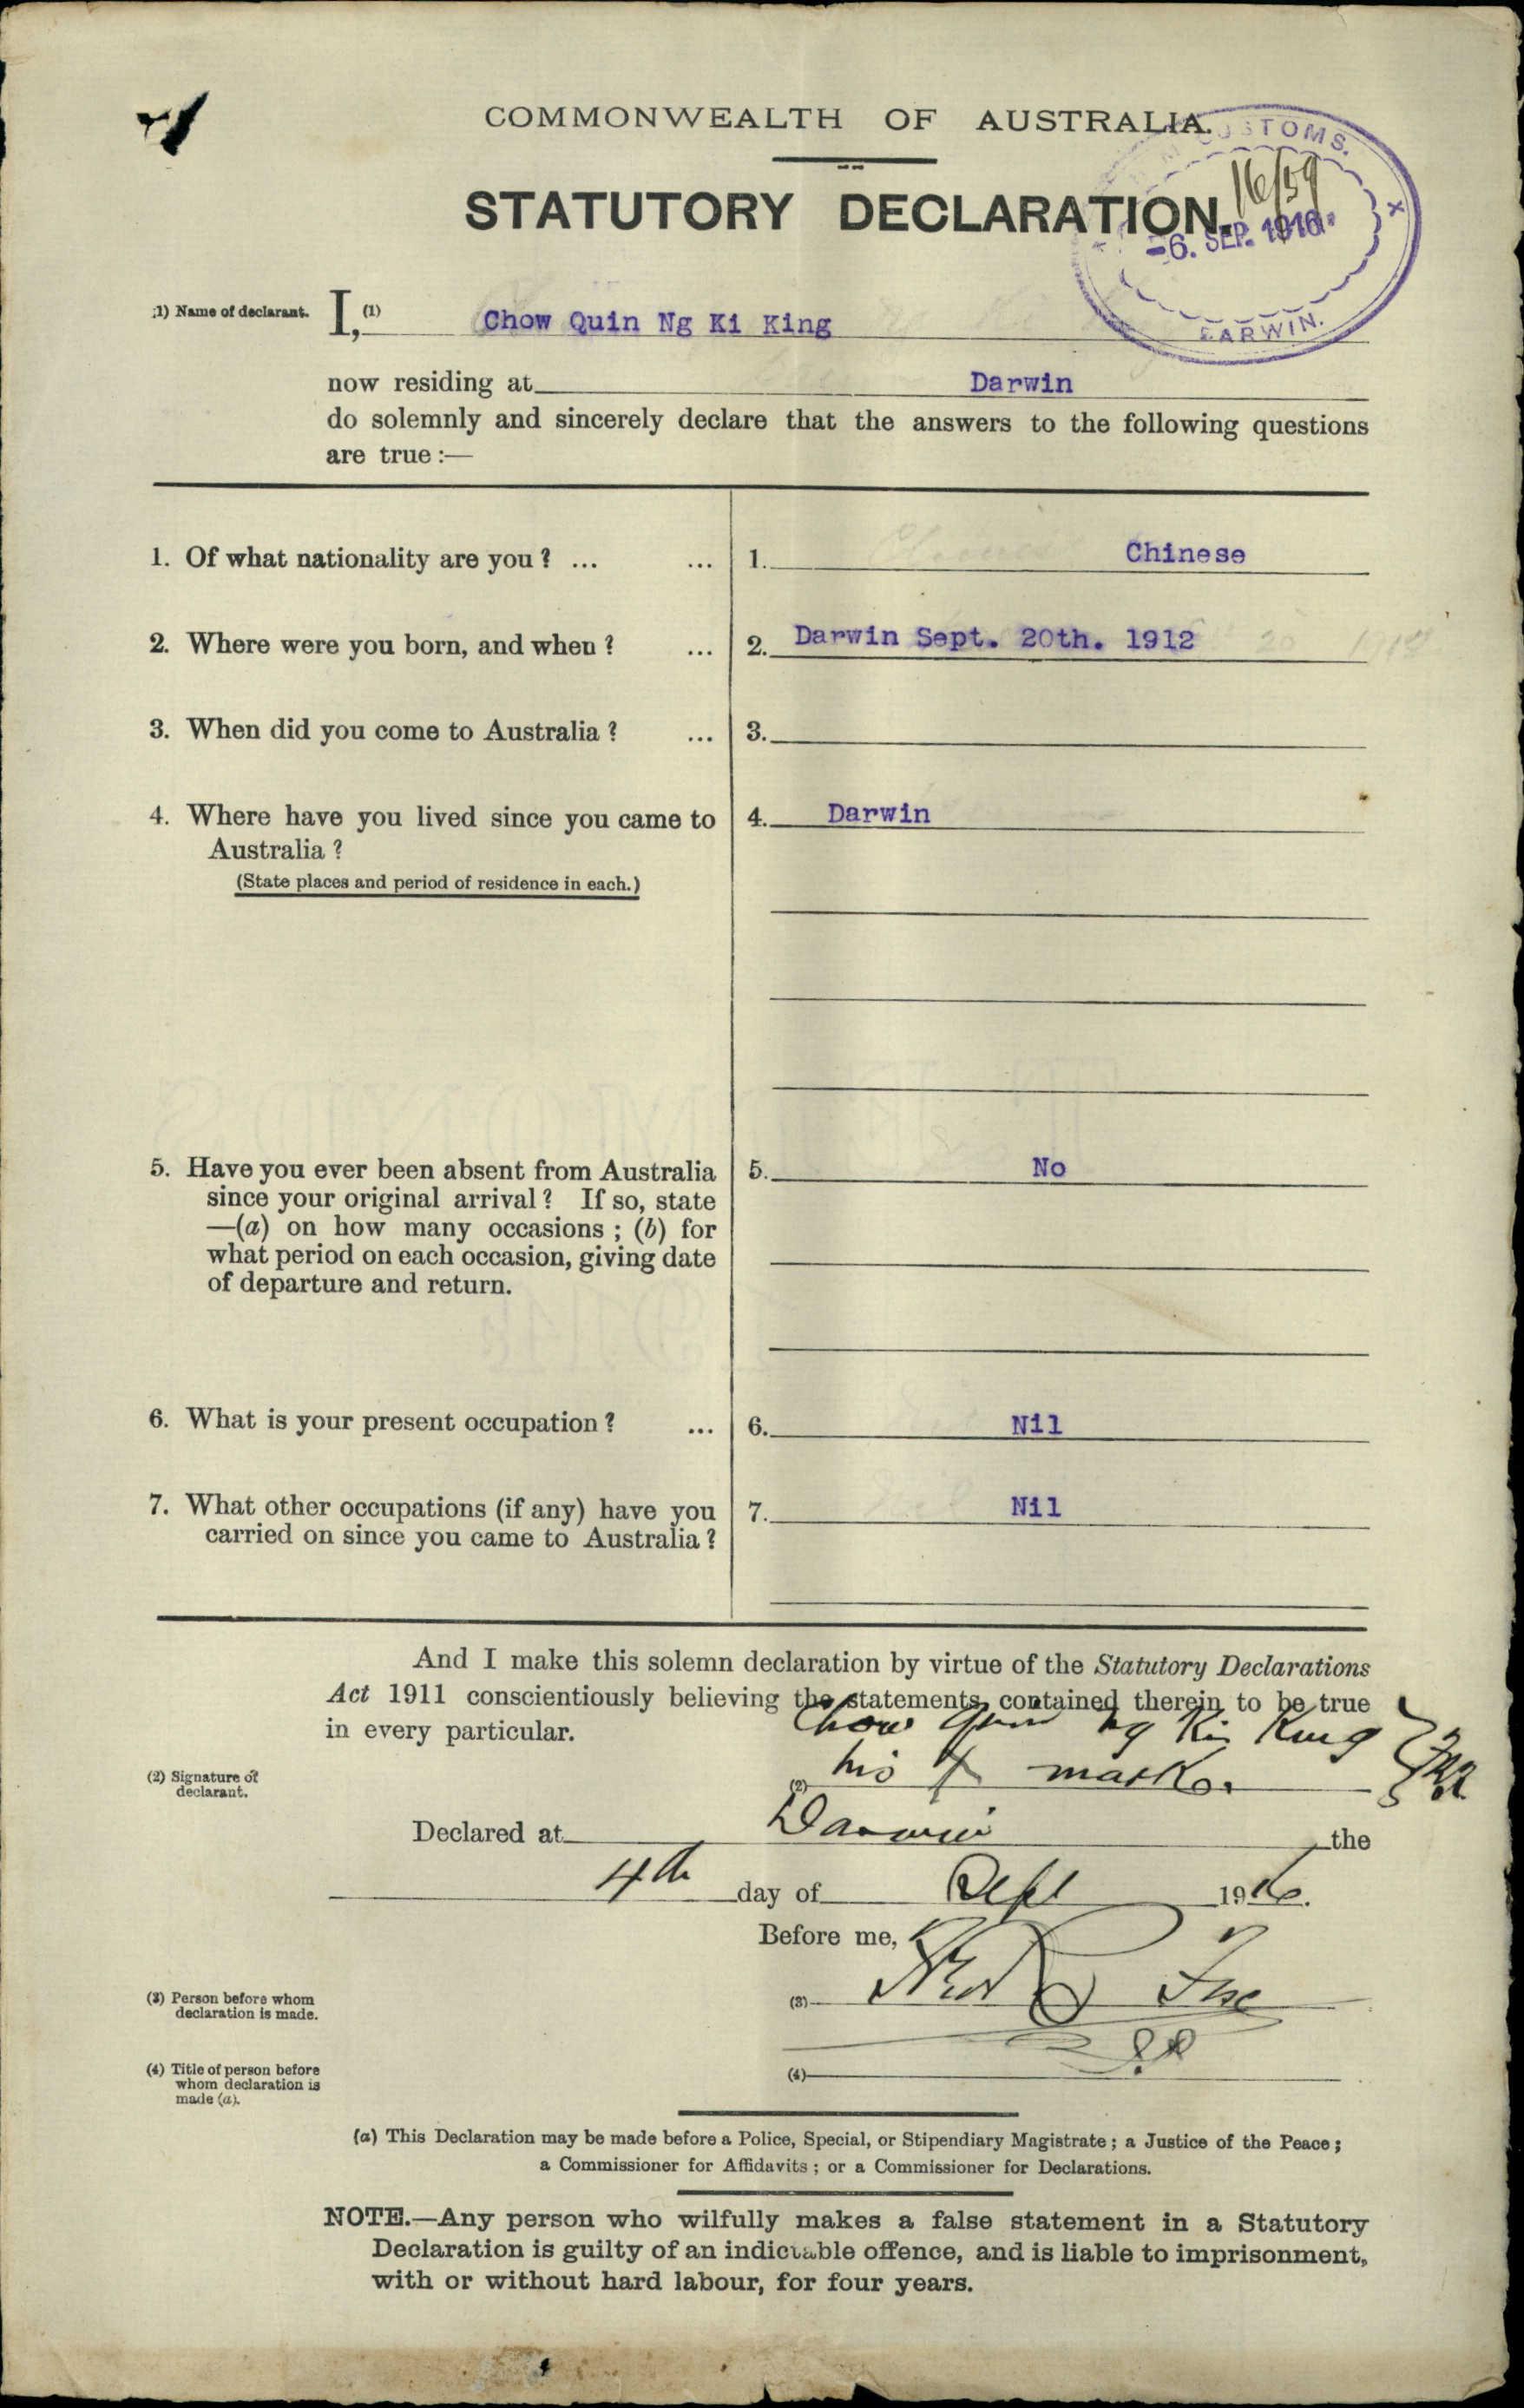 COMMONWEALTH OF AUSTRALIA.
CUSTOMS.
16/59
STATUTORY DECLARATION.
-6. SEP. 1916
DARWIN.
(1) Name of declarant. I, (1) Chow Quin Ng Ki King
now residing at Darwin
do solemnly and sincerely declare that the answers to the following questions
are true :—
1. Of what nationality are you ? ... ... 1. Chinese
2. Where were you born, and when ? ... 2. Darwin Sept. 20th. 1912
3. When did you come to Australia ? ... 3.
4. Where have you lived since you came to 4. Darwin
Australia ?
(State places and period of residence in each.)
5. Have you ever been absent from Australia 5. No
since your original arrival ? If so, state
—(a) on how many occasions ; (b) for
what period on each occasion, giving date
of departure and return.
6. What is your present occupation ? ... 6. Nil
7. What other occupations (if any) have you 7. Nil
carried on since you came to Australia ?
And I make this solemn declaration by virtue of the Statutory Declarations
Act 1911 conscientiously believing the statements contained therein to be true
in every particular.
Chow Quin Ng Ki King
(2) Signature of
declarant.
(2) his X mark.
Declared at Darwin the
4th day of Sept 1916.
Before me,
(3) Person before whom
declaration is made.
(3)
(4) Title of person before
whom declaration is
made (a).
(4)
(a) This Declaration may be made before a Police, Special, or Stipendiary Magistrate ; a Justice of the Peace ;
a Commissioner for Affidavits ; or a Commissioner for Declarations.
NOTE.—Any person who wilfully makes a false statement in a Statutory
Declaration is guilty of an indictable offence, and is liable to imprisonment,
with or without hard labour, for four years.